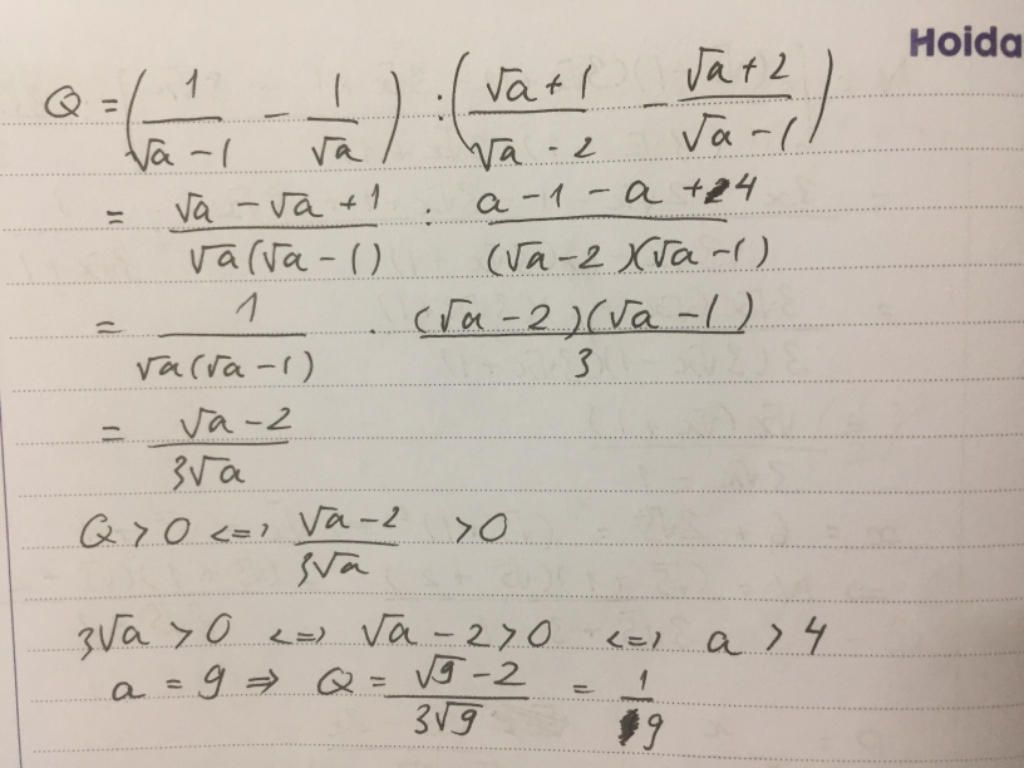 Hoida
Q = (1/(√a - 1) - 1/√a) : ((√a + 1)/(√a - 2) - (√a + 2)/(√a - 1))
= (√a - √a + 1)/(√a(√a - 1)) : (a - 1 - a + 4)/((√a - 2)(√a - 1))
= 1/(√a(√a - 1)) . ((√a - 2)(√a - 1))/3
= (√a - 2)/(3√a)
Q > 0 <=> (√a - 2)/(3√a) > 0
3√a > 0 <=> √a - 2 > 0 <=> a > 4
a = 9 => Q = (√9 - 2)/(3√9) = 1/9